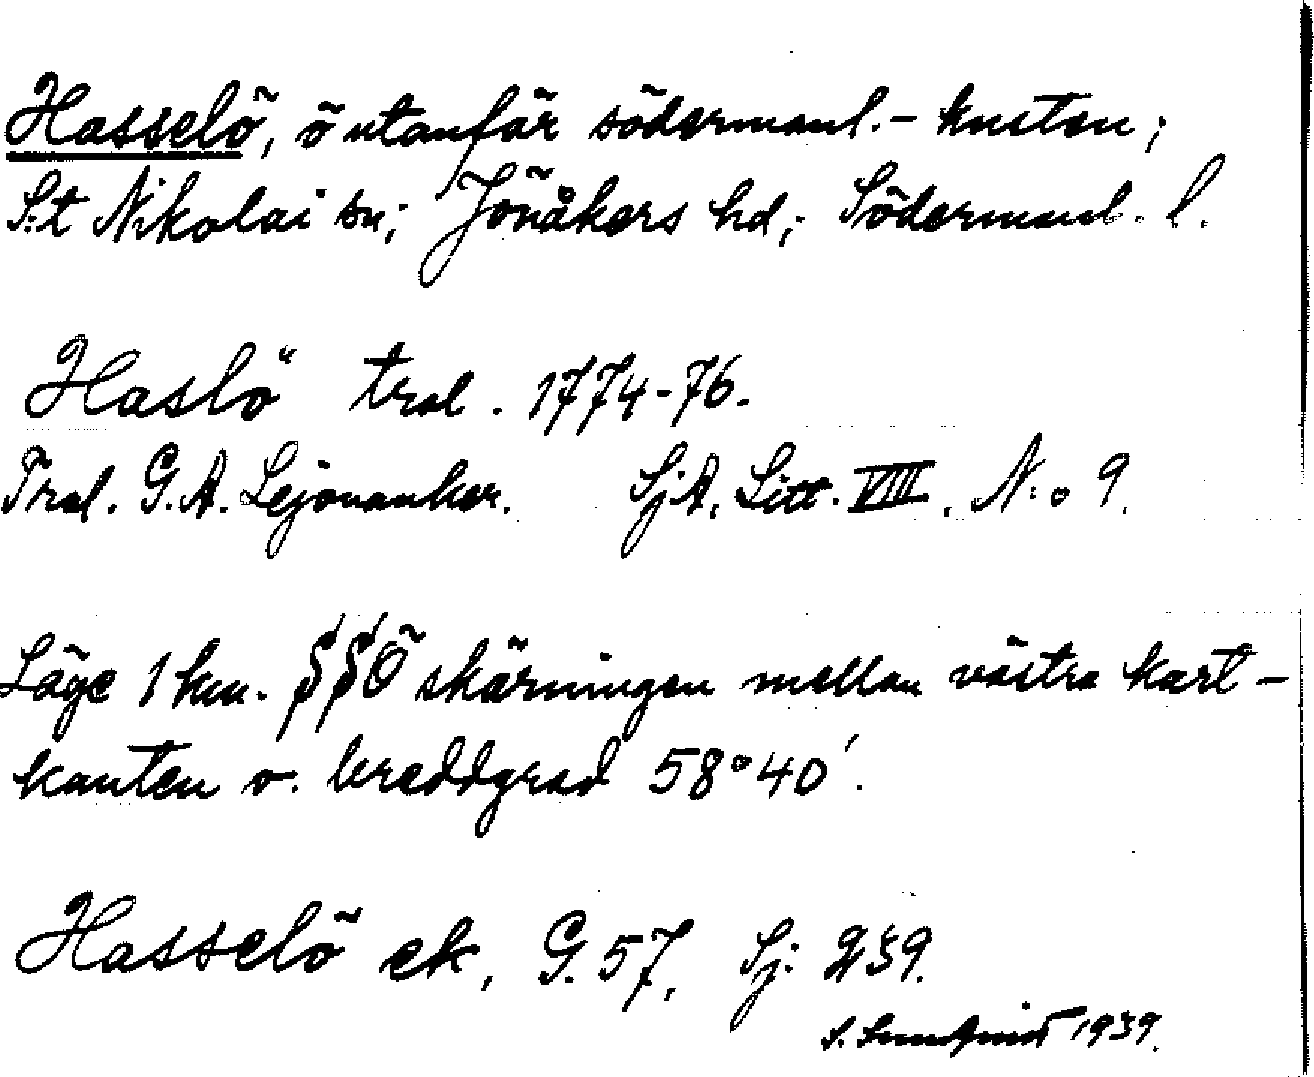 Hasselö, ö utanför södermanl.-kusten;
S:t Nikolai sn; Jönåkers hd; Södermanl. l.
Haslö tral. 1774-76.
Tral. G.A. Lejonanker. SjA. Litt. VIII. N:o 9.
Läge 1 km. SSÖ skärningen mellan västra kart-
kanten o. breddgrad 58°40'.
Hasselö ek. G. 57, Sj: 239.
S. 1939.